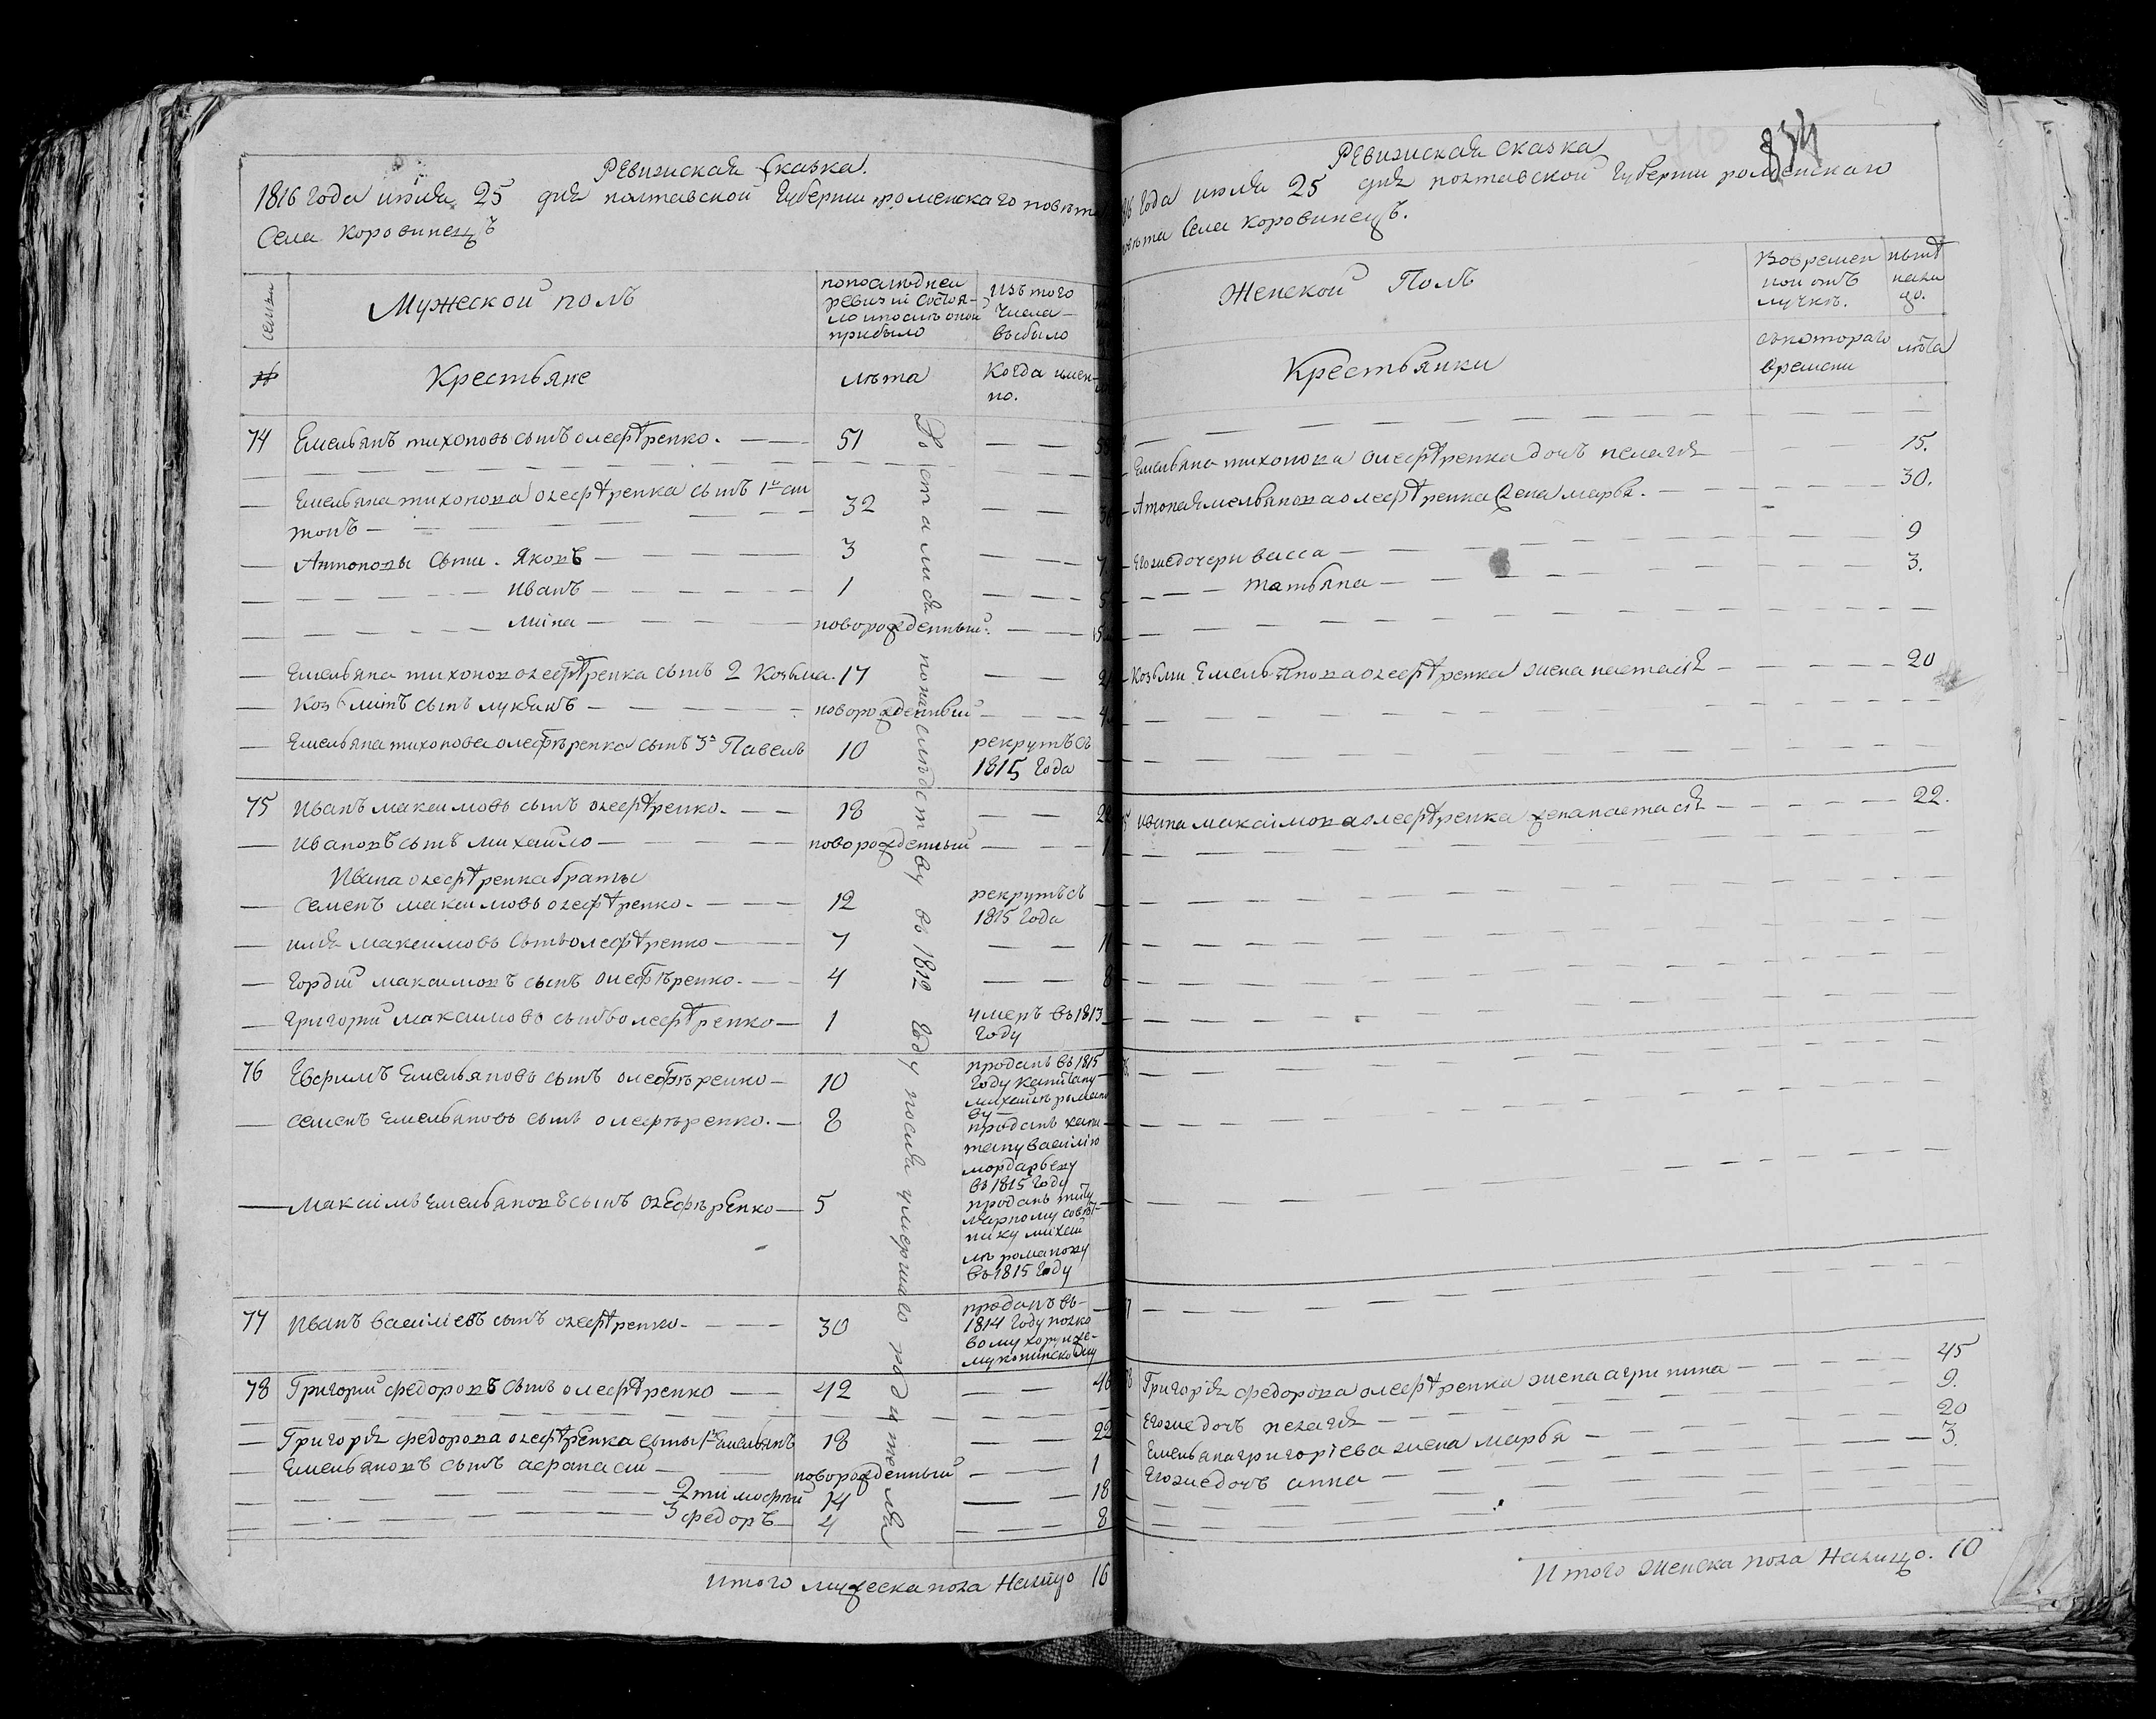 Ревизская Сказка.
1816 года июля 25 дня полтавской Губернии роменскаго повѣта
Села Коровинецъ
семьи
Мужеской полъ
попослѣдней
ревизіи состоя-
ло ипослѣ оной
прибыло
Изъ того
числа
выбыло
№
Крестьяне
лѣта
Когда имен-
но.
74 Емельянъ тихоновъ сынъ олефѣренко. 51
Емельяна тихонова олефѣренка сынъ 1й ан
тонъ 32
Антоновы сыни. Яковъ 3
иванъ 1
мина новорожденный.
Емельяна тихонов олефѣренка сынъ 2 Козьма. 17
Козьминъ сынъ лукянъ новорожденный 4
Емельяна тихонова олефѣренка сынъ 3й Павелъ 10 рекрутъ съ
1815 года
75 Иванъ максимовъ сынъ олефѣренко. 18 22
ивановъ сынъ михайло новорожденный 1
Ивана олефѣренка браты
семенъ максимовъ олефѣренко. 12 рекрутъ съ
1815 года
илия максимовъ сынъ олефѣренко 7 11
гордій максимовъ сынъ олефѣренко. 4 8
григорий максимовъ сынъ олефѣренко 1 умеръ въ 1813
году
76 Ефримъ Емельяновъ сынъ олефѣренко 10 проданъ въ 1815
году капитану
семенъ Емельяновъ сынъ олефѣренко. 8 проданъ капи
тану василію
въ 1815 году
Максимъ Емельяновъ сынъ олефѣренко 5 проданъ титу
лярному совѣт-
нику михай
лѣ романову
въ 1815 году
77 Иванъ василіевъ сынъ олефѣренко. 30 проданъ въ
1814 году полко
вому хорунже-
му
78 Григорий федоровъ сынъ олефѣренко 42 46
Григорія федорова олефѣренка сыны 1й Емельянъ 18 22
Емельяновъ сынъ афанасій новорожденный 1
2 тимофей 14 18
3 федоръ 4 8
Итого мужеска пола Налицо 16
Достались по наслѣдству въ 1812 году послѣ умершаго родителя
834
Ревизская сказка
года июля 25 дня полтавской Губернии роменскаго
повѣта Села Коровинецъ.
Женской Полъ
Вовремен
ной отъ
лучкѣ.
нынѣ
нали
цо.
Крестьянки
съкотораго
времени
лѣта
Емельяна тихонова олефѣренка дочъ пелагія 15.
Антона Емельянова олефѣренка жена марья. 30.
Егоже дочери васса 9
татьяна 3.
Козьми Емельянова олефѣренка жена настасія 20
Ивана максимова олефѣренка жена настасія 22.
Григорія федорова олефѣренка жена агрипина 45
Егоже дочъ пелагія 9.
Емельяна григоріева жена марья 20
Егоже дочъ анна 3.
Итого женска пола Налицо. 10